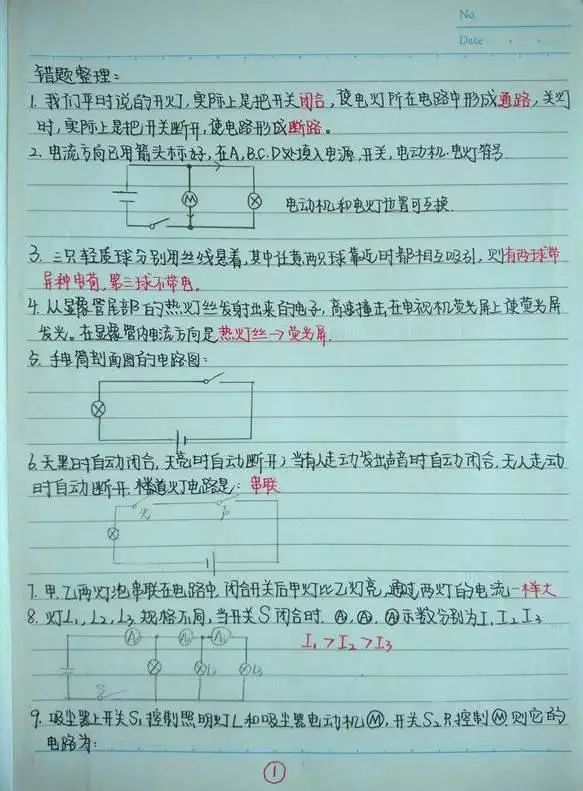 No.
Date
错题整理:
1. 我们平时说的开灯,实际上是把开关闭合,使电灯所在电路中形成通路,关灯
时,实际上是把开关断开,使电路形成断路。
2. 电流方向已用箭头标好,在A,B,C,D处填入电源,开关,电动机,电灯符号.
M
电动机和电灯位置可互换.
3. 三只轻质球分别用丝线悬着,其中任意两只球靠近时都相互吸引,则有两球带
异种电荷,第三球不带电。
4. 从显像管尾部的热灯丝发射出来的电子,高速撞击在电视机荧光屏上使荧光屏
发光。在显像管内电流方向是热灯丝→荧光屏.
5. 手电筒剖面图的电路图:
6. 天黑时自动闭合,天亮时自动断开;当有人走动发出声音时自动闭合,无人走动
时自动断开.楼道灯电路是:串联
光 声
7. 甲.乙两灯泡串联在电路中,闭合开关后甲灯比乙灯亮,通过两灯的电流一样大
8. 灯L1, L2, L3 规格不同,当开关S闭合时. A1, A2, A3示数分别为I1, I2 I3
A1 A2 A3 I1>I2>I3
L2 L3
S
9. 吸尘器上开关S1控制照明灯L和吸尘器电动机M,开关S2只控制M.则它的
电路为:
1